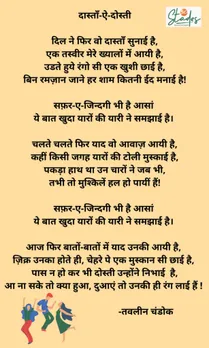 दास्ताँ-ऐ-दोस्ती
Stades
दिल ने फिर वो दास्ताँ सुनाई है,
एक तस्वीर मेरे ख्यालों में आयी है,
उडते हुये रंगो सी एक खुशी छाई है,
बिन रमज़ान जाने हर शाम कितनी ईद मनाई है!
सफ़र-ए-जिन्दगी भी है आसां
ये बात खुदा यारों की यारी ने समझाई है।
चलते चलते फिर याद वो आवाज़ आयी है,
कहीं किसी जगह यारों की टोली मुस्काई है,
पकड़ा हाथ था उन चारों ने जब भी,
तभी तो मुश्किलें हल हो पायीं हैं!
सफ़र-ए-जिन्दगी भी है आसां
ये बात खुदा यारों की यारी ने समझाई है।
आज फिर बातों-बातों में याद उनकी आयी है,
ज़िक्र उनका होते ही, चेहरे पे एक मुस्कान सी छाई है,
पास न हो कर भी दोस्ती उन्होंने निभाई है,
आ ना सके तो क्या हुआ, दुआएं तो उनकी ही रंग लाई हैं !
-तवलीन चंडोक